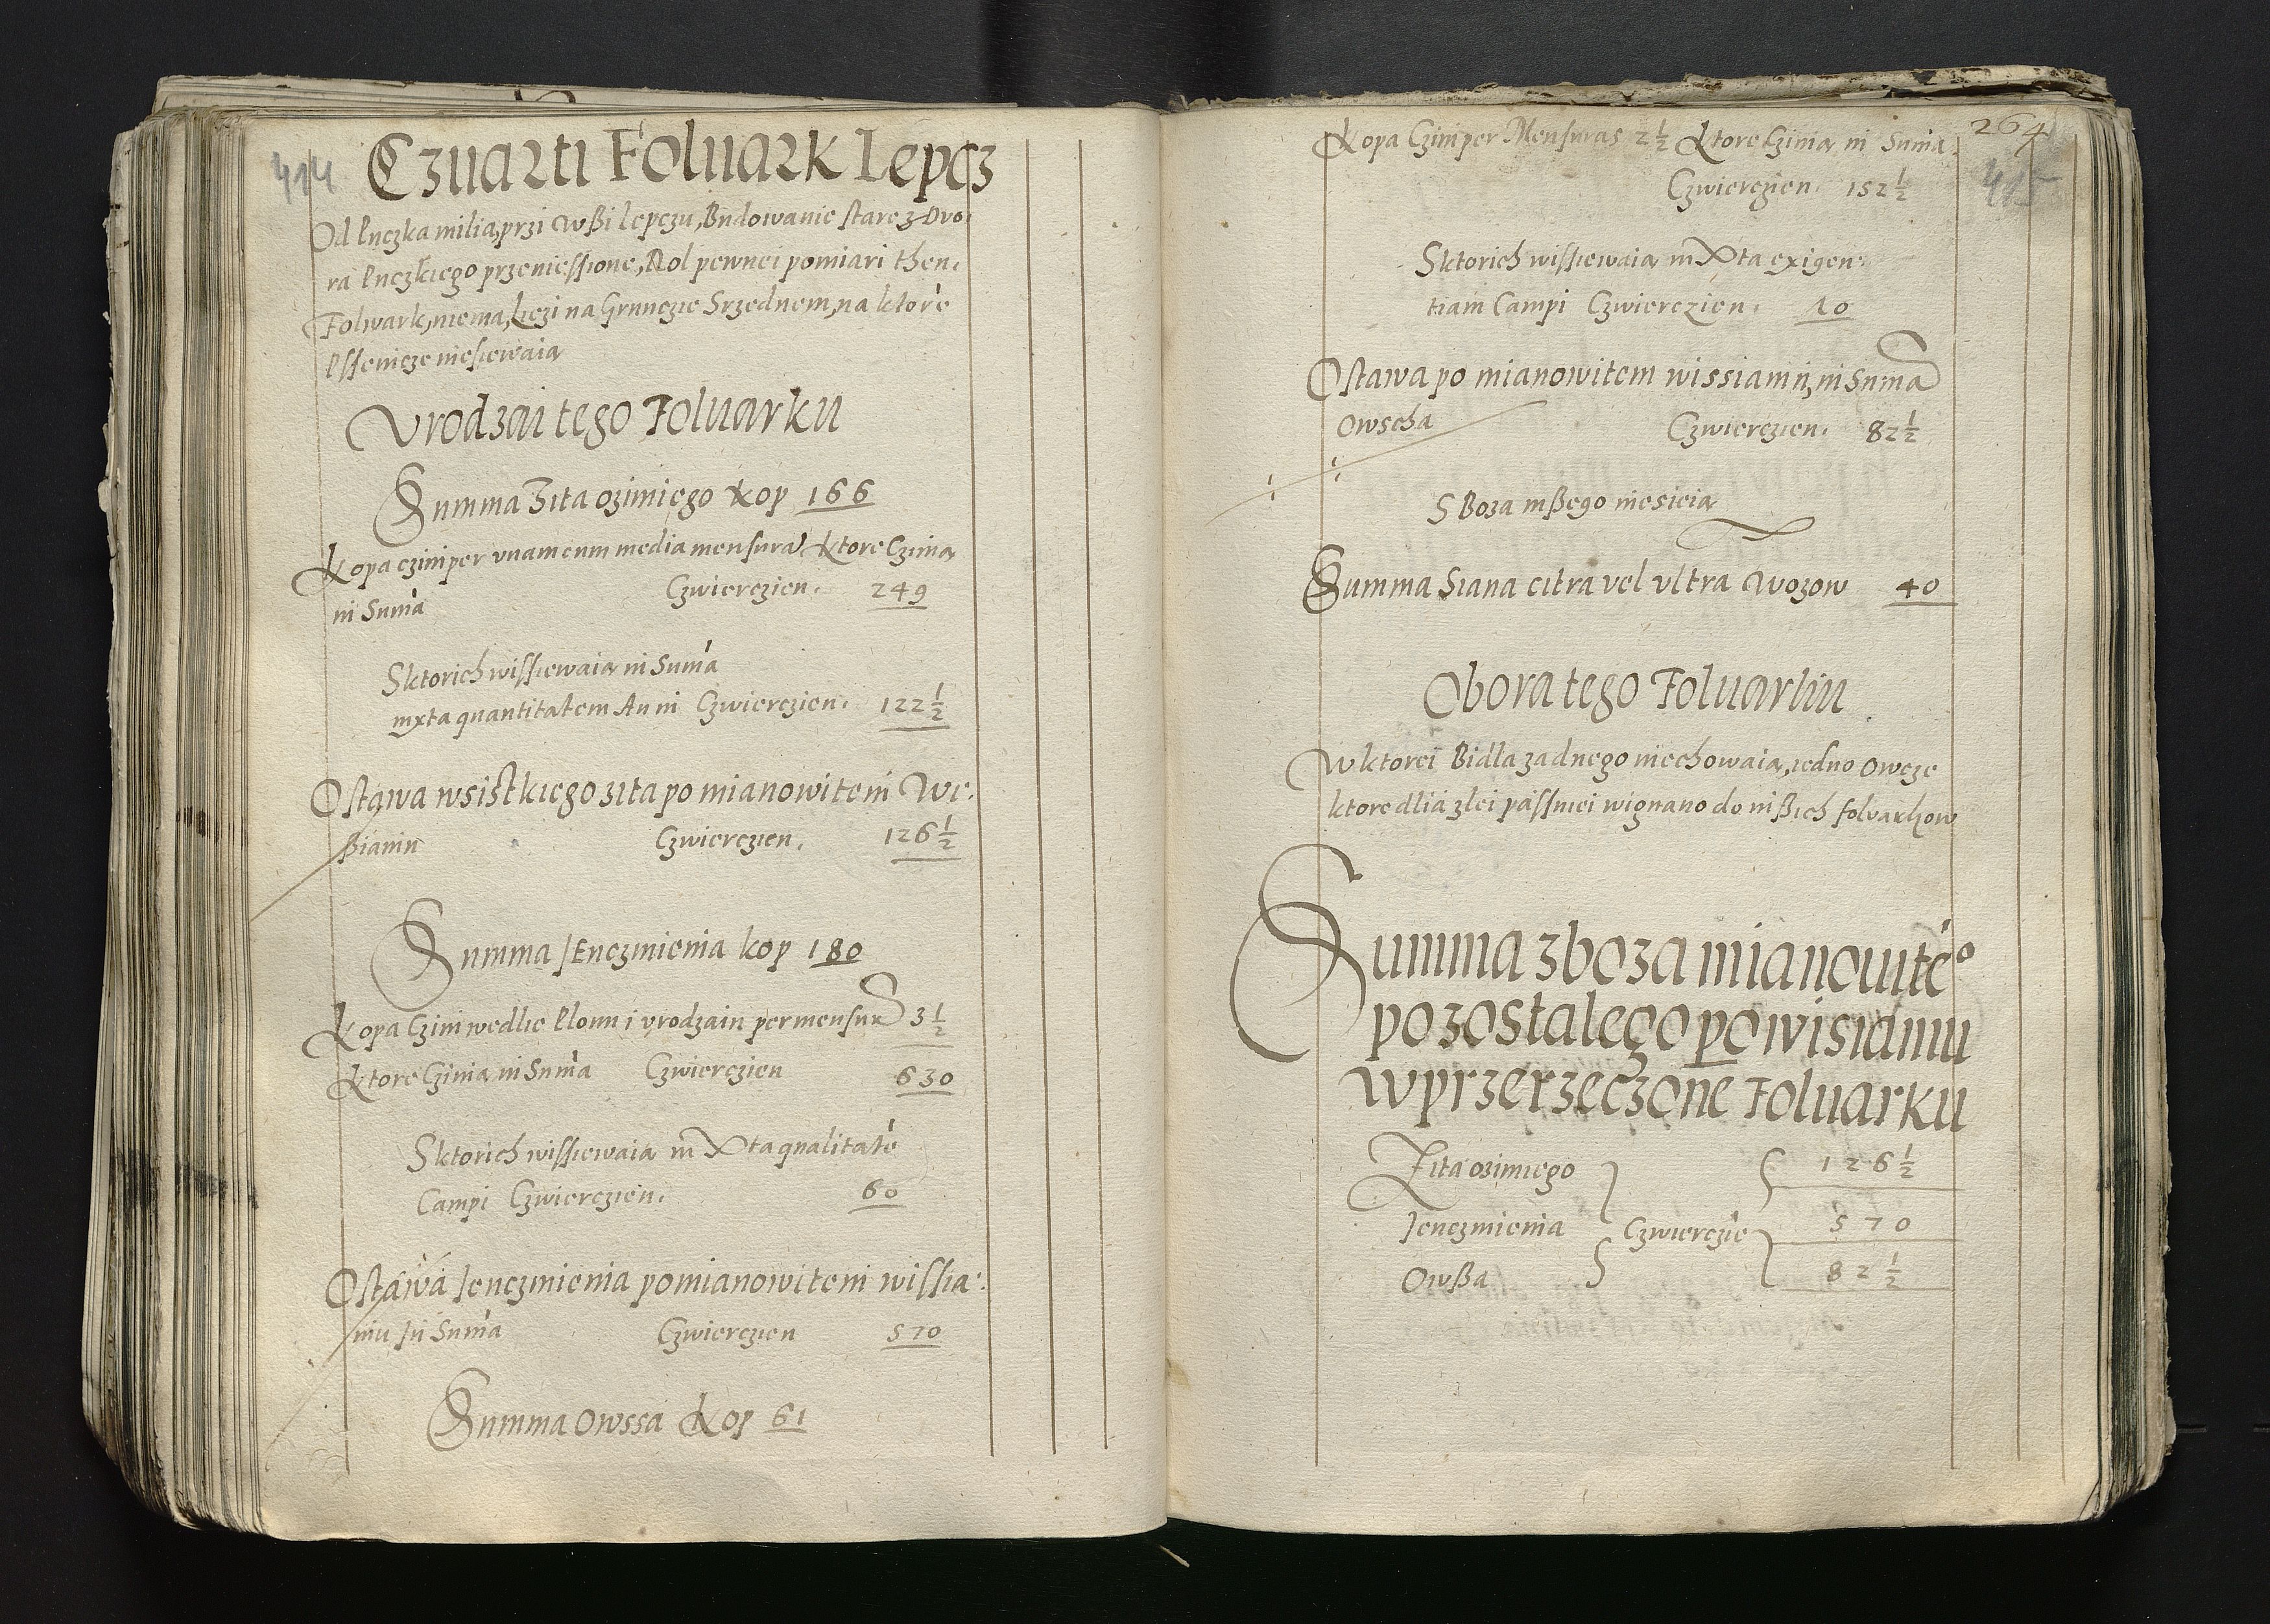 414
Czuarti Foluark Lepcz
Od Puczka milia, przi wßi Lepczu, Budowanie stare z Dvo.
ra Puczkiego przeniessione, Rol pewnei pomiari then.
Folwark, niema, Liezi na Grunczie Srzednem, na ktore
Pssenicze niesiewaią
Vrodzai tego Foluarku
Summa Zita ozimiego kop 166
Kopa czini per vnam cum media mensura Ktore Czinią
in Sum̃a Czwierczien. 249
Sktorich wissiewaią in Sum̃a
iuxta quantitatem Anni Czwierczien. 122½
Ostawa wsistkiego zita po mianowitem We.
ßianiu Czwierczien. 126½
Summa Jenczmienia kop 180
Kopa Czini wedlie Plonu i vrodzaiu per mensur 3½
Ktore Czinią in Sum̃a Czwierczien 630
Sktorich wissiewaią iuXta qualitatẽ
Campi Czwierczien. 60
Ostawa Jenczmienia pomianowitem wissia:
niu in Sum̃a Czwierczien 570
Summa Owssa Kop 61
264
415
Kopa Czini per Mensuras 2½ Ktore Czinią in Sum̃a.
Czwierczien. 152½
Sktorich wissiewaią iuXta exigen.
tiam Campi Czwierczien. 10
Ostawa po mianowitem wissianiu, in Sum̃a
Owscha Czwierczien. 82½
S Boza inßego niesieią
Summa Siana citra vel vltra Wozow 40
Obora tego Foluarku
W ktorei Bidla zadnego niechowaią, iedno Owcze
ktore dlia zlei passniei wignano do inßich folvarkow
Summa zboza mianouite°
pozostalego po wisianiu
w przerzeczone Foluarku
Zita ozimiego 126½
Jenczmienia Czwierczie 570
Owßa 82½